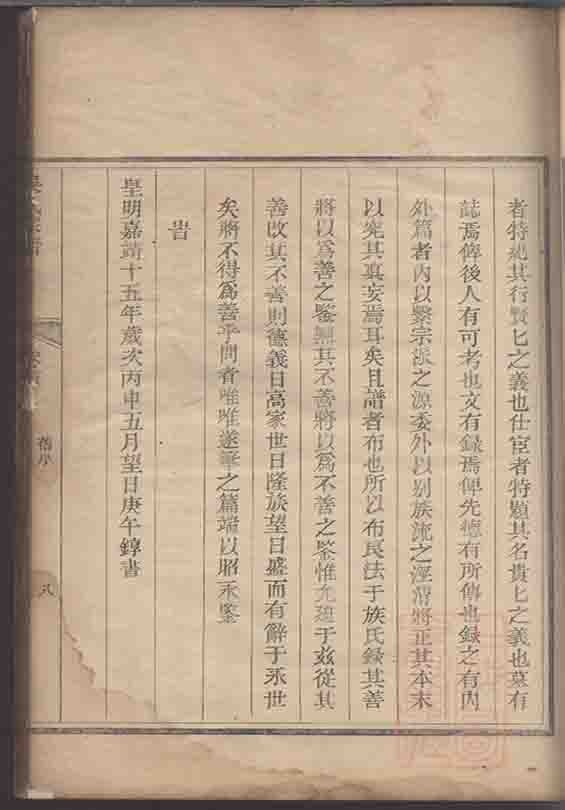 者特紀其行賢匕之義也仕宦者特題其名貴匕之義也墓有
誌焉俾後人有可考也文有録焉俾先德有所傳也録之有内
外篇者内以繋宗派之源委外以别族流之涇渭將正其本末
以究其真妄焉耳矣且譜者布也所以布良法于族氏録其善
將以爲善之鑒無其不善將以爲不善之鑒惟允廸于兹從其
善改其不善則德義日高家世日隆族望日盛而有辭于永世
矣將不得爲善乎問者唯唯遂筆之篇端以昭永鑒
旹
皇明嘉靖十五年歲次丙申五月望日庚午錞書
舊序
八